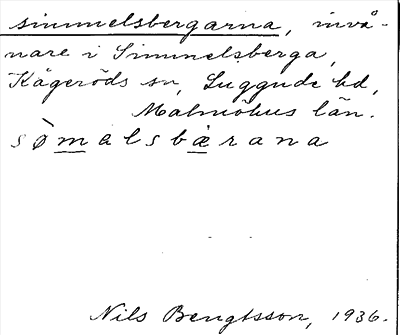 simmelsbergarna, invå-
nare i Simmelsberga,
Kågeröds sn, Luggude hd,
Malmöhus län.
sø̀malsbærana
Nils Bengtsson, 1936.